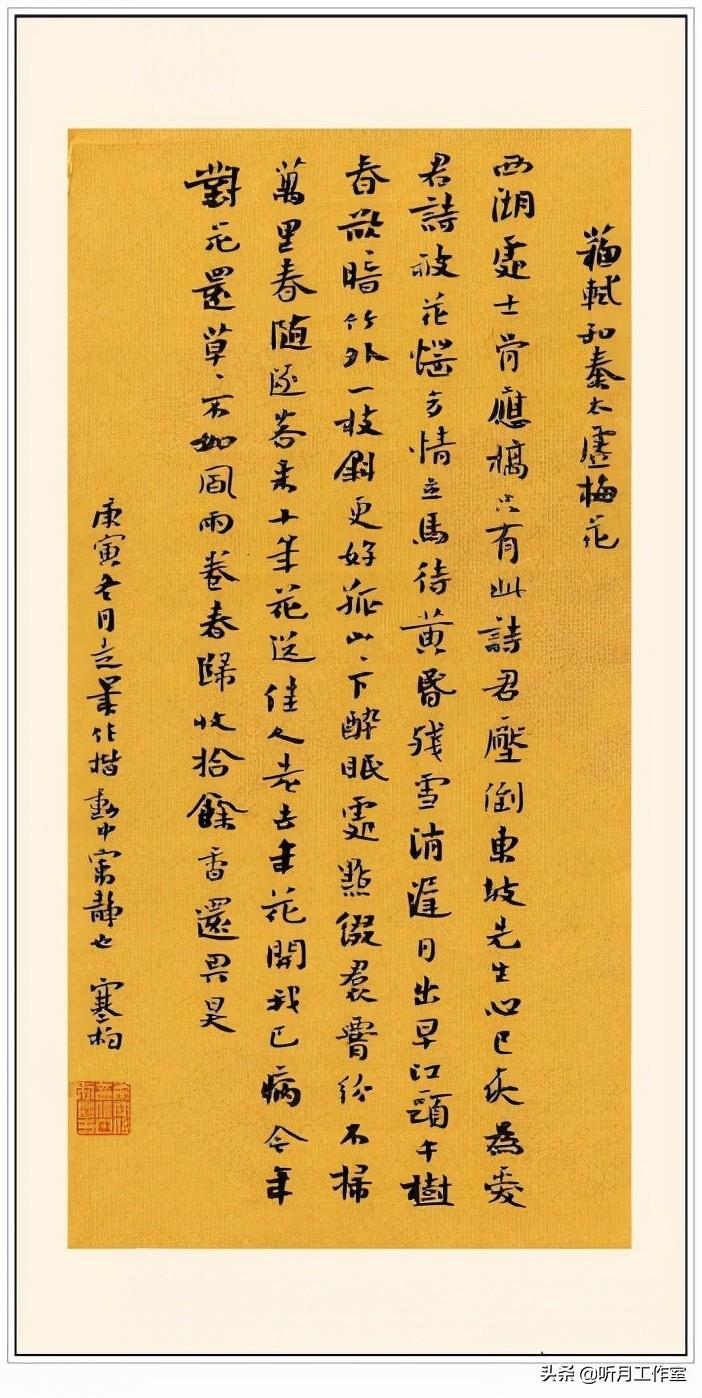 蘇軾和秦太虛梅花
西湖處士骨應槁只有此詩君壓倒東坡先生心已灰為愛
君詩被花惱多情立馬待黃昏殘雪消遲月出早江頭千樹
春欲暗竹外一枝斜更好孤山々下醉眠處點綴裠腰紛不掃
萬里春隨逐客來十年花送佳人老去年花開我已病今年
對花還草々不如風雨卷春歸收拾餘香還畀昊
庚寅冬月走筆作楷動中寓靜也 寒柏
头条 @听月工作室